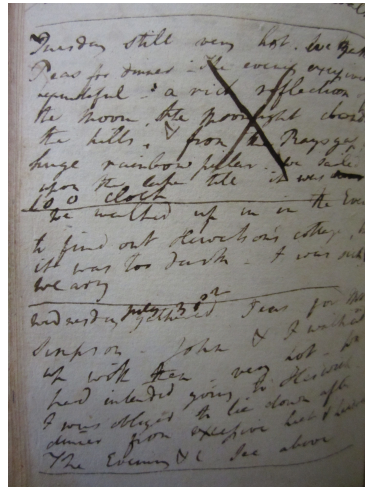 Tuesday still very hot. We gath
Peas for dinner. The evening excessively
beautiful - a rich reflection
the moon, the moonlight clouds
the hills, & from the Rays gap
huge rainbow pillar. We sailed
upon the lake till it was
10 o clock
We walked up in in the Eve
to find out Hewetson's cottage,
it was too dark. I was sick
weary
Wednesday July 30th gathered Peas for Mrs
Simpson - John & I walked
up with them very hot -
had intended going to
I was obliged to lie down after
dinner from excessive heat & head
The Evening &c See above